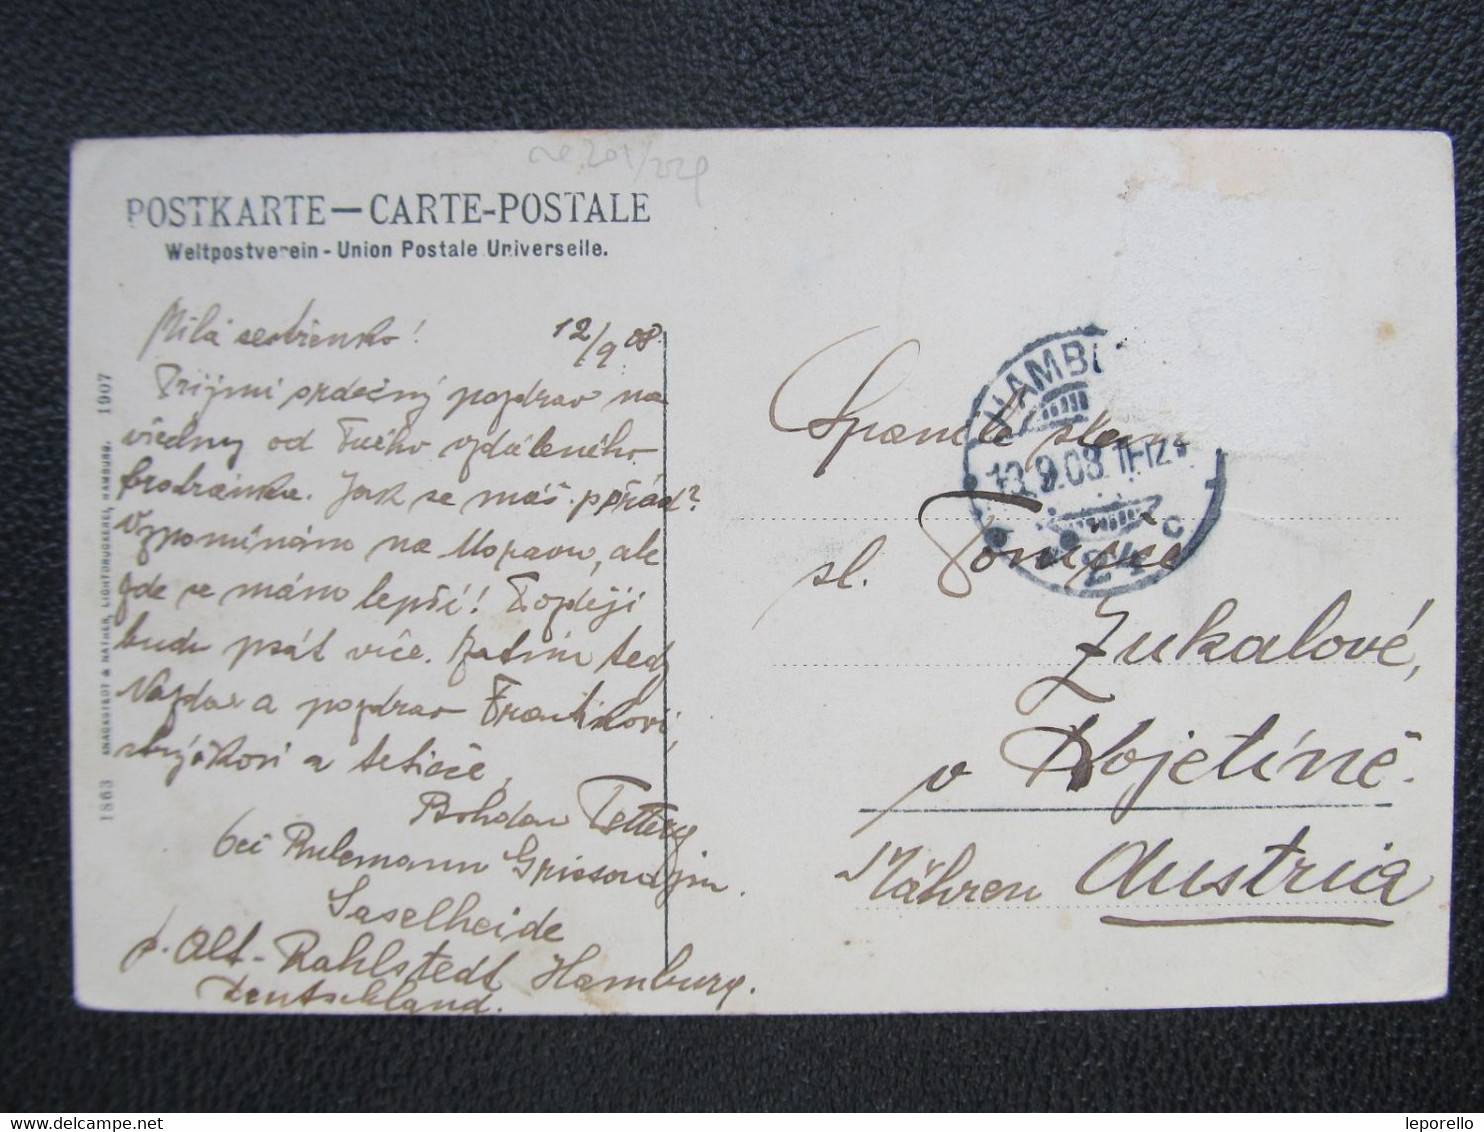 POSTKARTE—CARTE-POSTALE
Weltpostverein - Union Postale Universelle.
Milá sestřenko! 12/9 08.
Přijmi srdečný pozdrav na
všedny od Tvého vzdáleného
bratránka. Jak se máš pořád?
Vzpomínám na Moravu, ale
zde se mám lepší! Později
budu psát více. Zatím tedy
Nazdar a pozdrav Frantíkovi,
strýčkovi a tetičce,
Bohdan
bei Ruhemann
Saselheide
p. Alt-Rahlstedt Hamburg.
Deutschland.
1863 KNACKSTEDT & NÄTHER, LICHTDRUCKEREI, HAMBURG. 1907
HAMB
13.9.08.
24 c
Spanilá
sl.
Zukalové,
v Kojetíně.
Mähren Austria
leporello